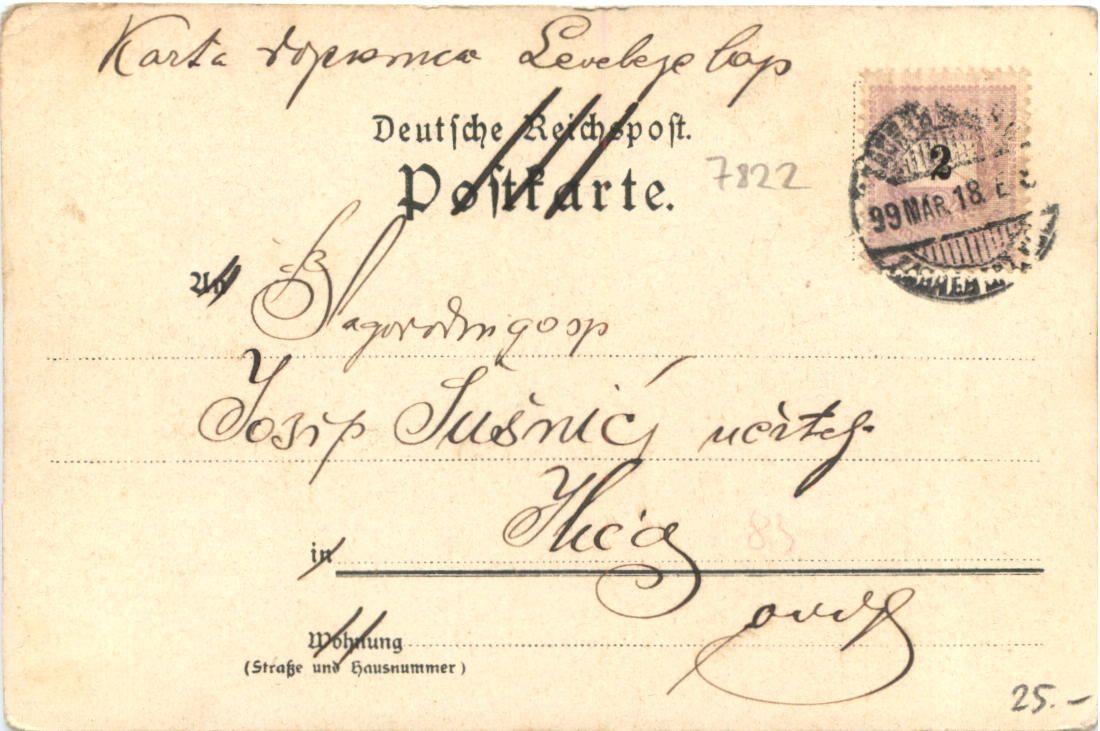 Karta dopisnica Levelező lap
Deutsche Reichspost.
Postkarte.
7822
2
99 MAR. 18. E
An
Blagorodni gosp
Josip Sušnić učitelj
in Ilića
83
ovdje
Wohnung
(Straße und Hausnummer)
25.-